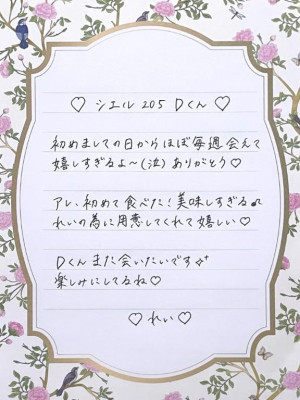 ♡ シエル 205 Dくん ♡
初めましての日からほぼ毎週会えて
嬉しすぎるよ〜(泣)ありがとう♡
アレ、初めて食べた!美味しすぎる♫
れいの為に用意してくれて嬉しい♡
Dくんまた会いたいです✨
楽しみにしてるね♡
♡ れい ♡